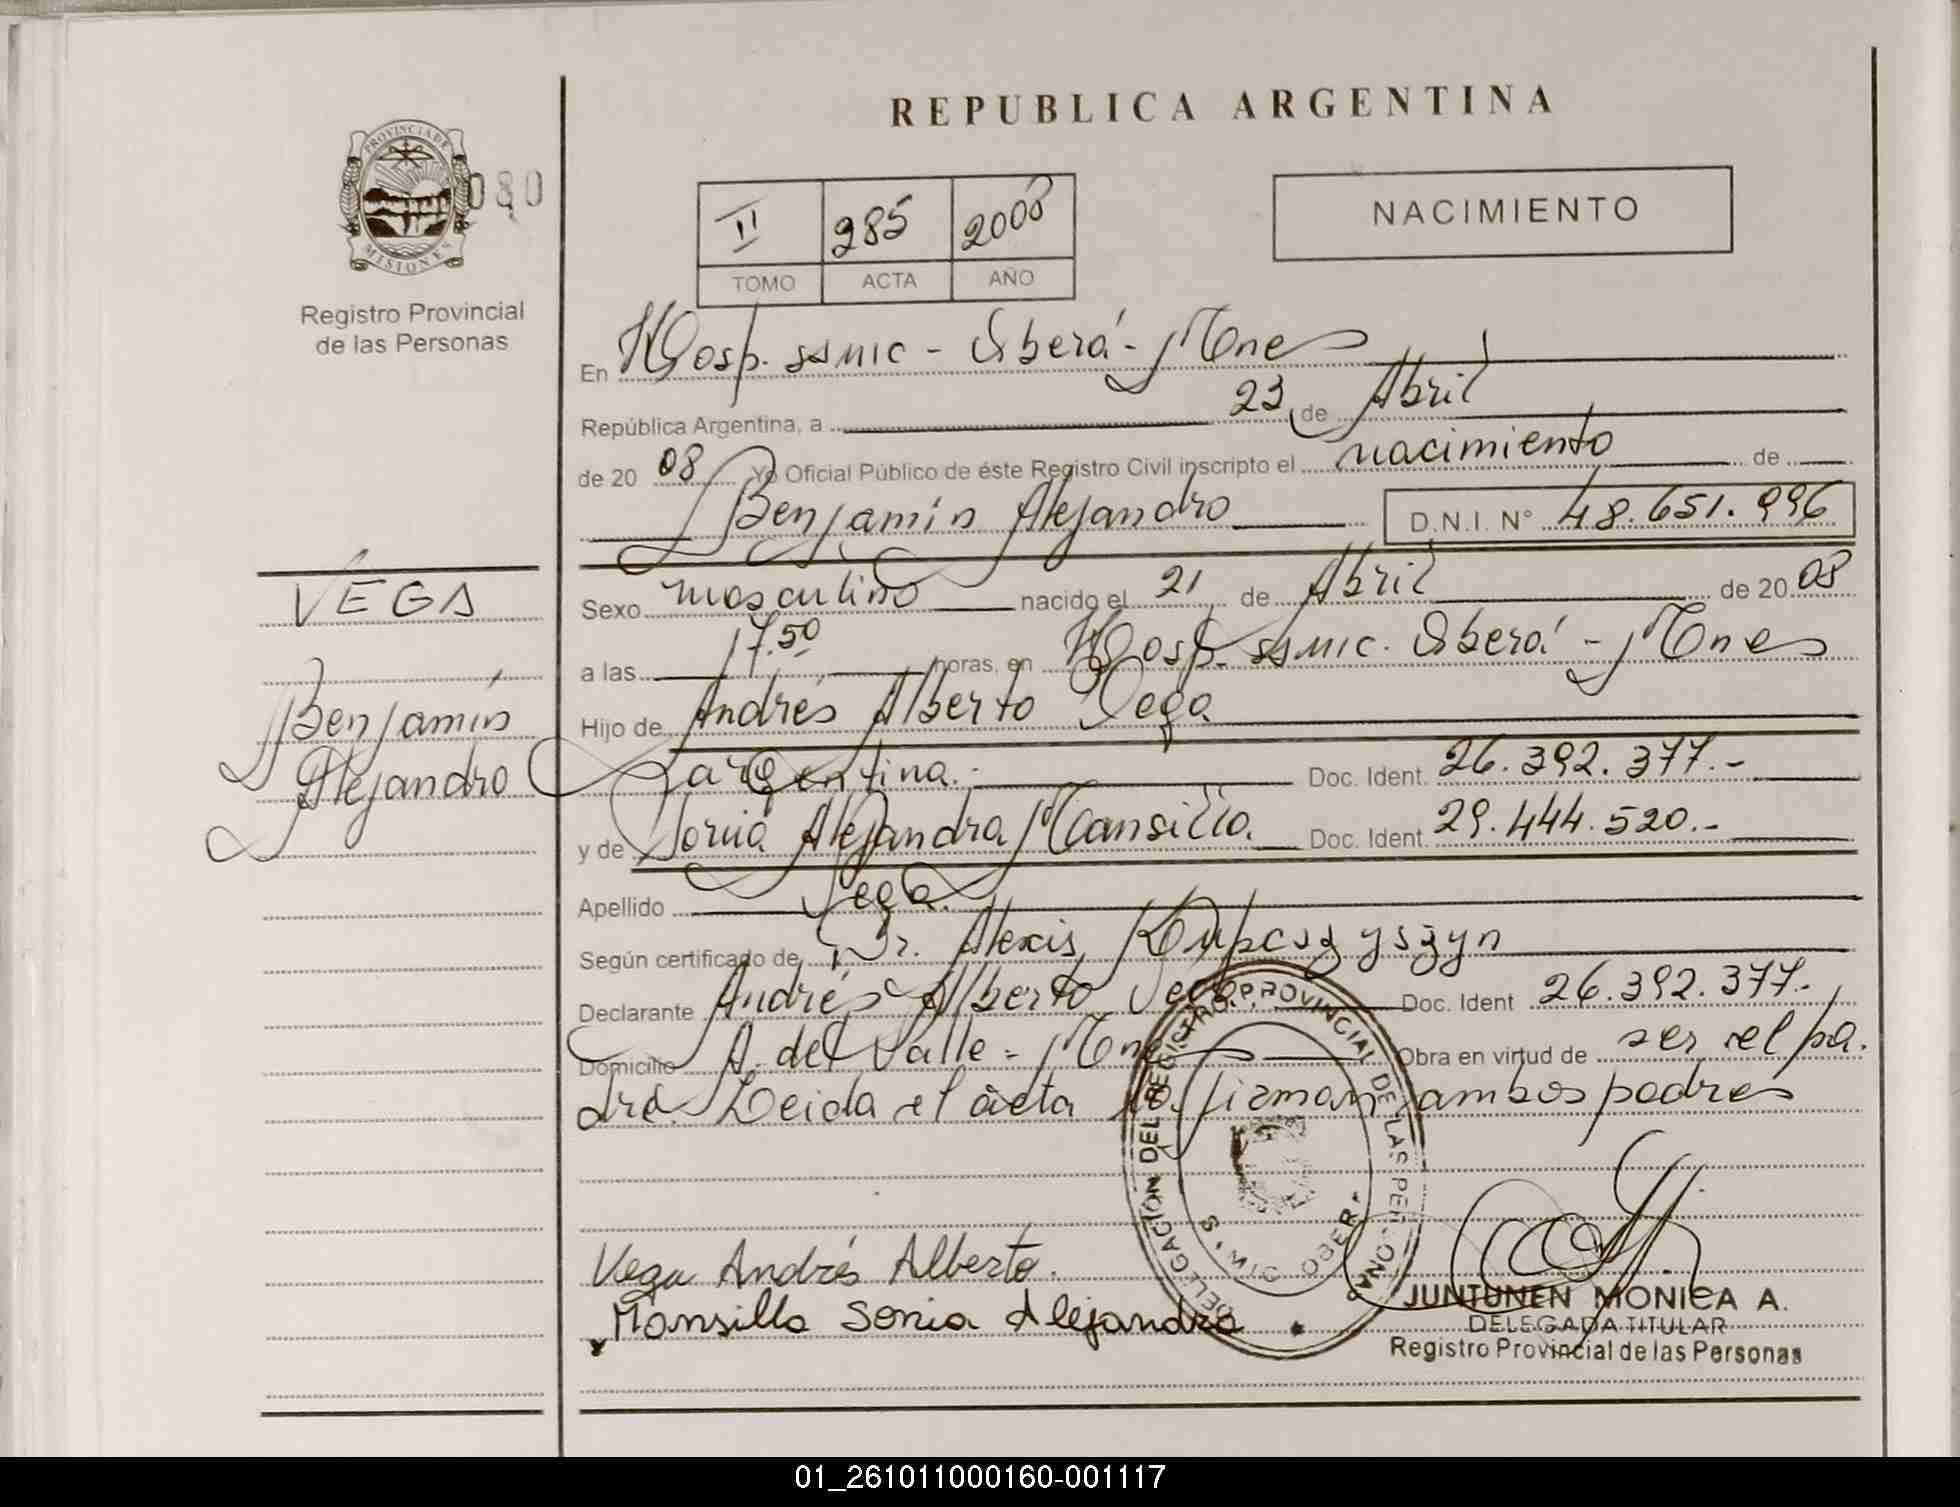 REPUBLICA ARGENTINA
PROVINCIA DE
MISIONES
080
Registro Provincial
de las Personas
II 285 2008
TOMO ACTA AÑO
NACIMIENTO
En Hosp. ssmic - Oberá - Mnes
República Argentina, a 23 de Abril
de 20 08 Yo Oficial Público de éste Registro Civil inscripto el nacimiento de
Benjamín Alejandro D.N.I. N° 48.651.996
VEGA
Benjamín
Alejandro
Sexo masculino nacido el 21 de Abril de 20 08
a las 17.50 horas, en Hosp. ssmic. Oberá - Mnes
Hijo de Andrés Alberto Vega
argentina.- Doc. Ident. 26.392.377.-
y de Sonia Alejandra Mansilla. Doc. Ident. 29.444.520.-
Apellido Vega.
Según certificado de Dr. Alexis
Declarante Andrés Alberto Vega Doc. Ident 26.392.377.-
Domicilio A. del Valle - Mnes Obra en virtud de ser el pa.
dre. Leida el acta la firman ambos padres
DELEGACION DEL REGISTRO PROVINCIAL DE LAS PERSONAS
Vega Andrés Alberto.
Mansilla Sonia Alejandra
JUNTUNEN MONICA A.
DELEGADA TITULAR
Registro Provincial de las Personas
01_261011000160-001117